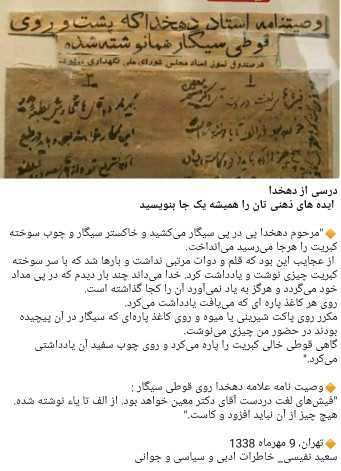 وصیتنامه استاد دهخدا که پشت و روی
قوطی سیگار هما نوشته شده
در صندوق اموز اسناد مجلس شورای ملی نگهداری میشود
درسی از دهخدا
ایده های ذهنی تان را همیشه یک جا بنویسید
🔶"مرحوم دهخدا پی در پی سیگار می‌کشید و خاکستر سیگار و چوب سوخته
کبریت را هرجا می‌رسید می‌انداخت.
از عجایب این بود که قلم و دوات مرتبی نداشت و بارها شد که با سر سوخته
کبریت چیزی نوشت و یادداشت کرد. خدا می‌داند چند بار دیدم که در پی مداد
خود می‌گردد و هرگز به یاد نمی‌آورد آن را کجا گذاشته است.
روی هر کاغذ پاره ای که می‌یافت یادداشت می‌کرد.
مکرر روی پاکت شیرینی یا میوه و روی کاغذ پاره‌ای که سیگار در آن پیچیده
بودند در حضور من چیزی می‌نوشت.
گاهی قوطی خالی کبریت را پاره می‌کرد و روی چوب سفید آن یادداشتی
می‌کرد."
🔶وصیت نامه علامه دهخدا روی قوطی سیگار :
"فیش‌های لغت دردست آقای دکتر معین خواهد بود. از الف تا یاء نوشته شده.
هیچ چیز از آن نباید افزود و کاست."
🔶تهران، 9 مهرماه 1338
سعید نفیسی_ خاطرات ادبی و سیاسی و جوانی